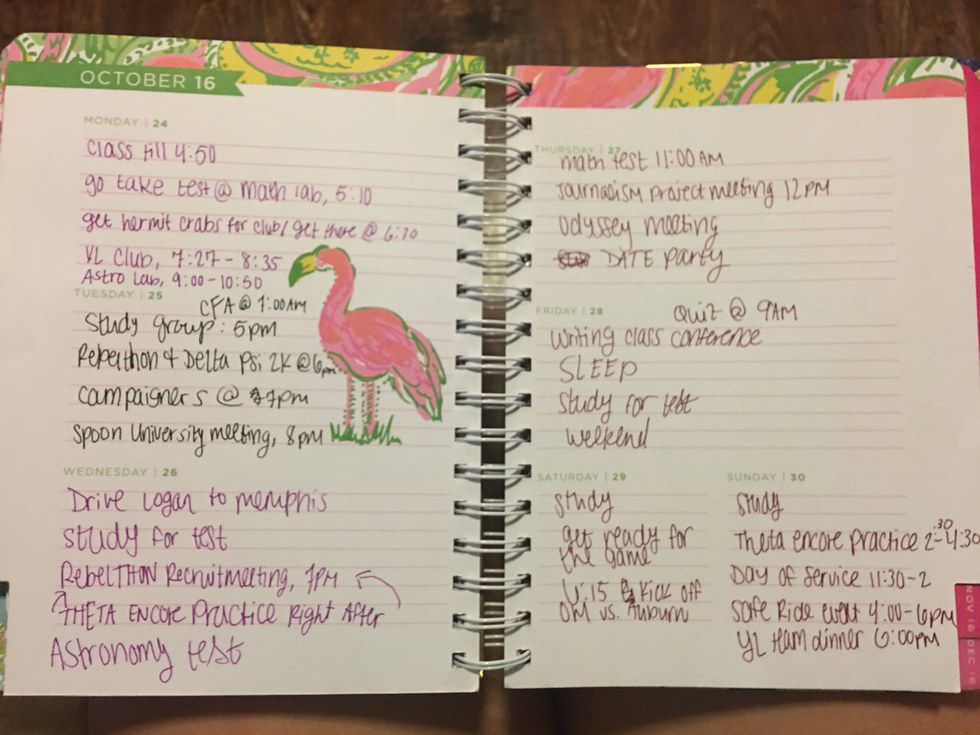 OCTOBER 16
MONDAY | 24
Class till 4:50
go take test @ math lab, 5:10
get hermit crabs for club/ get there @ 6:30
YL Club, 7:27-8:35
Astro Lab, 9:00-10:50
TUESDAY | 25
CFA @ 7:00AM
Study group: 5pm
Rebelthon & Delta Psi 2K @ 6pm
campaigners @ 7pm
Spoon University meeting, 8pm
WEDNESDAY | 26
Drive Logan to memphis
study for test
RebelTHON Recruitmeeting, 7PM
THETA ENCORE Practice Right After
Astronomy test
THURSDAY | 27
math test 11:00AM
Journalism project meeting 12PM
Odyssey meeting
DATE Party
FRIDAY | 28
Quiz @ 9AM
Writing class conference
SLEEP
Study for test
weekend
SATURDAY | 29
Study
get ready for
the game
6:15 Kick off
OM vs. Auburn
SUNDAY | 30
Study
Theta encore practice 2:30-4:30
Day of Service 11:30-2
Safe Ride event 4:00-6pm
YL team dinner 6:00pm
NOV 16
DEC 16